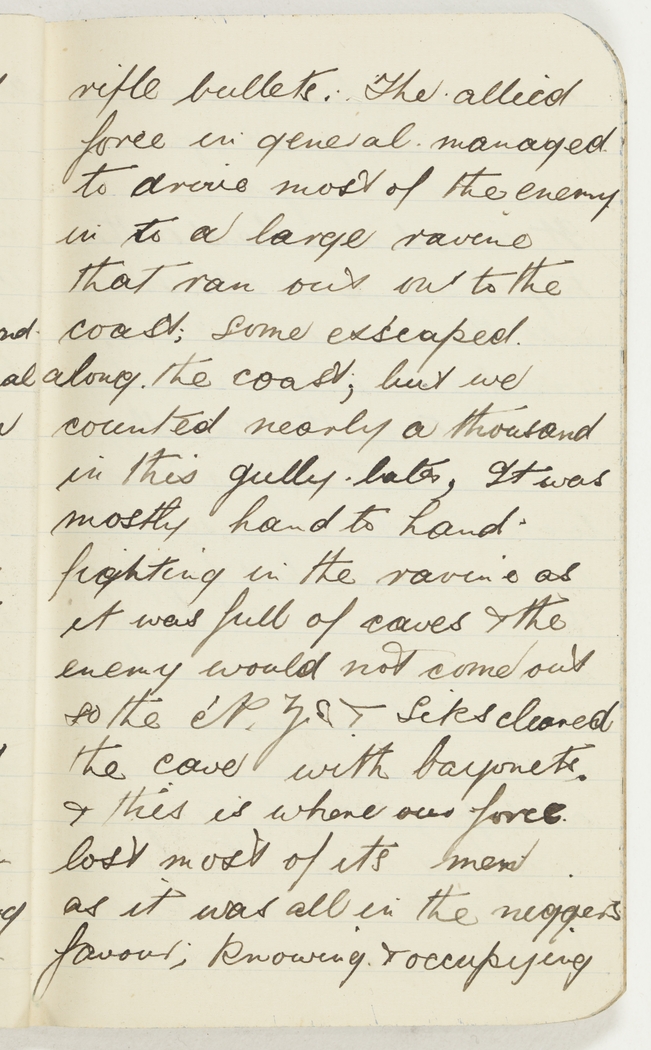 rifle bullets. The allied
force in general managed
to drive most of the enemy
in to a large ravine
that ran out on to the
coast; some esscaped.
along the coast; but we
counted nearly a thousand
in this gully later, It was
mostly hand to hand
fighting in the ravine as
it was full of caves & the
enemy would not come out
so the N.Z.s & Siks cleared
the cave with bayonets.
& this is where our force
lost most of its men
as it was all in the neggers
favour; knowing & occupying